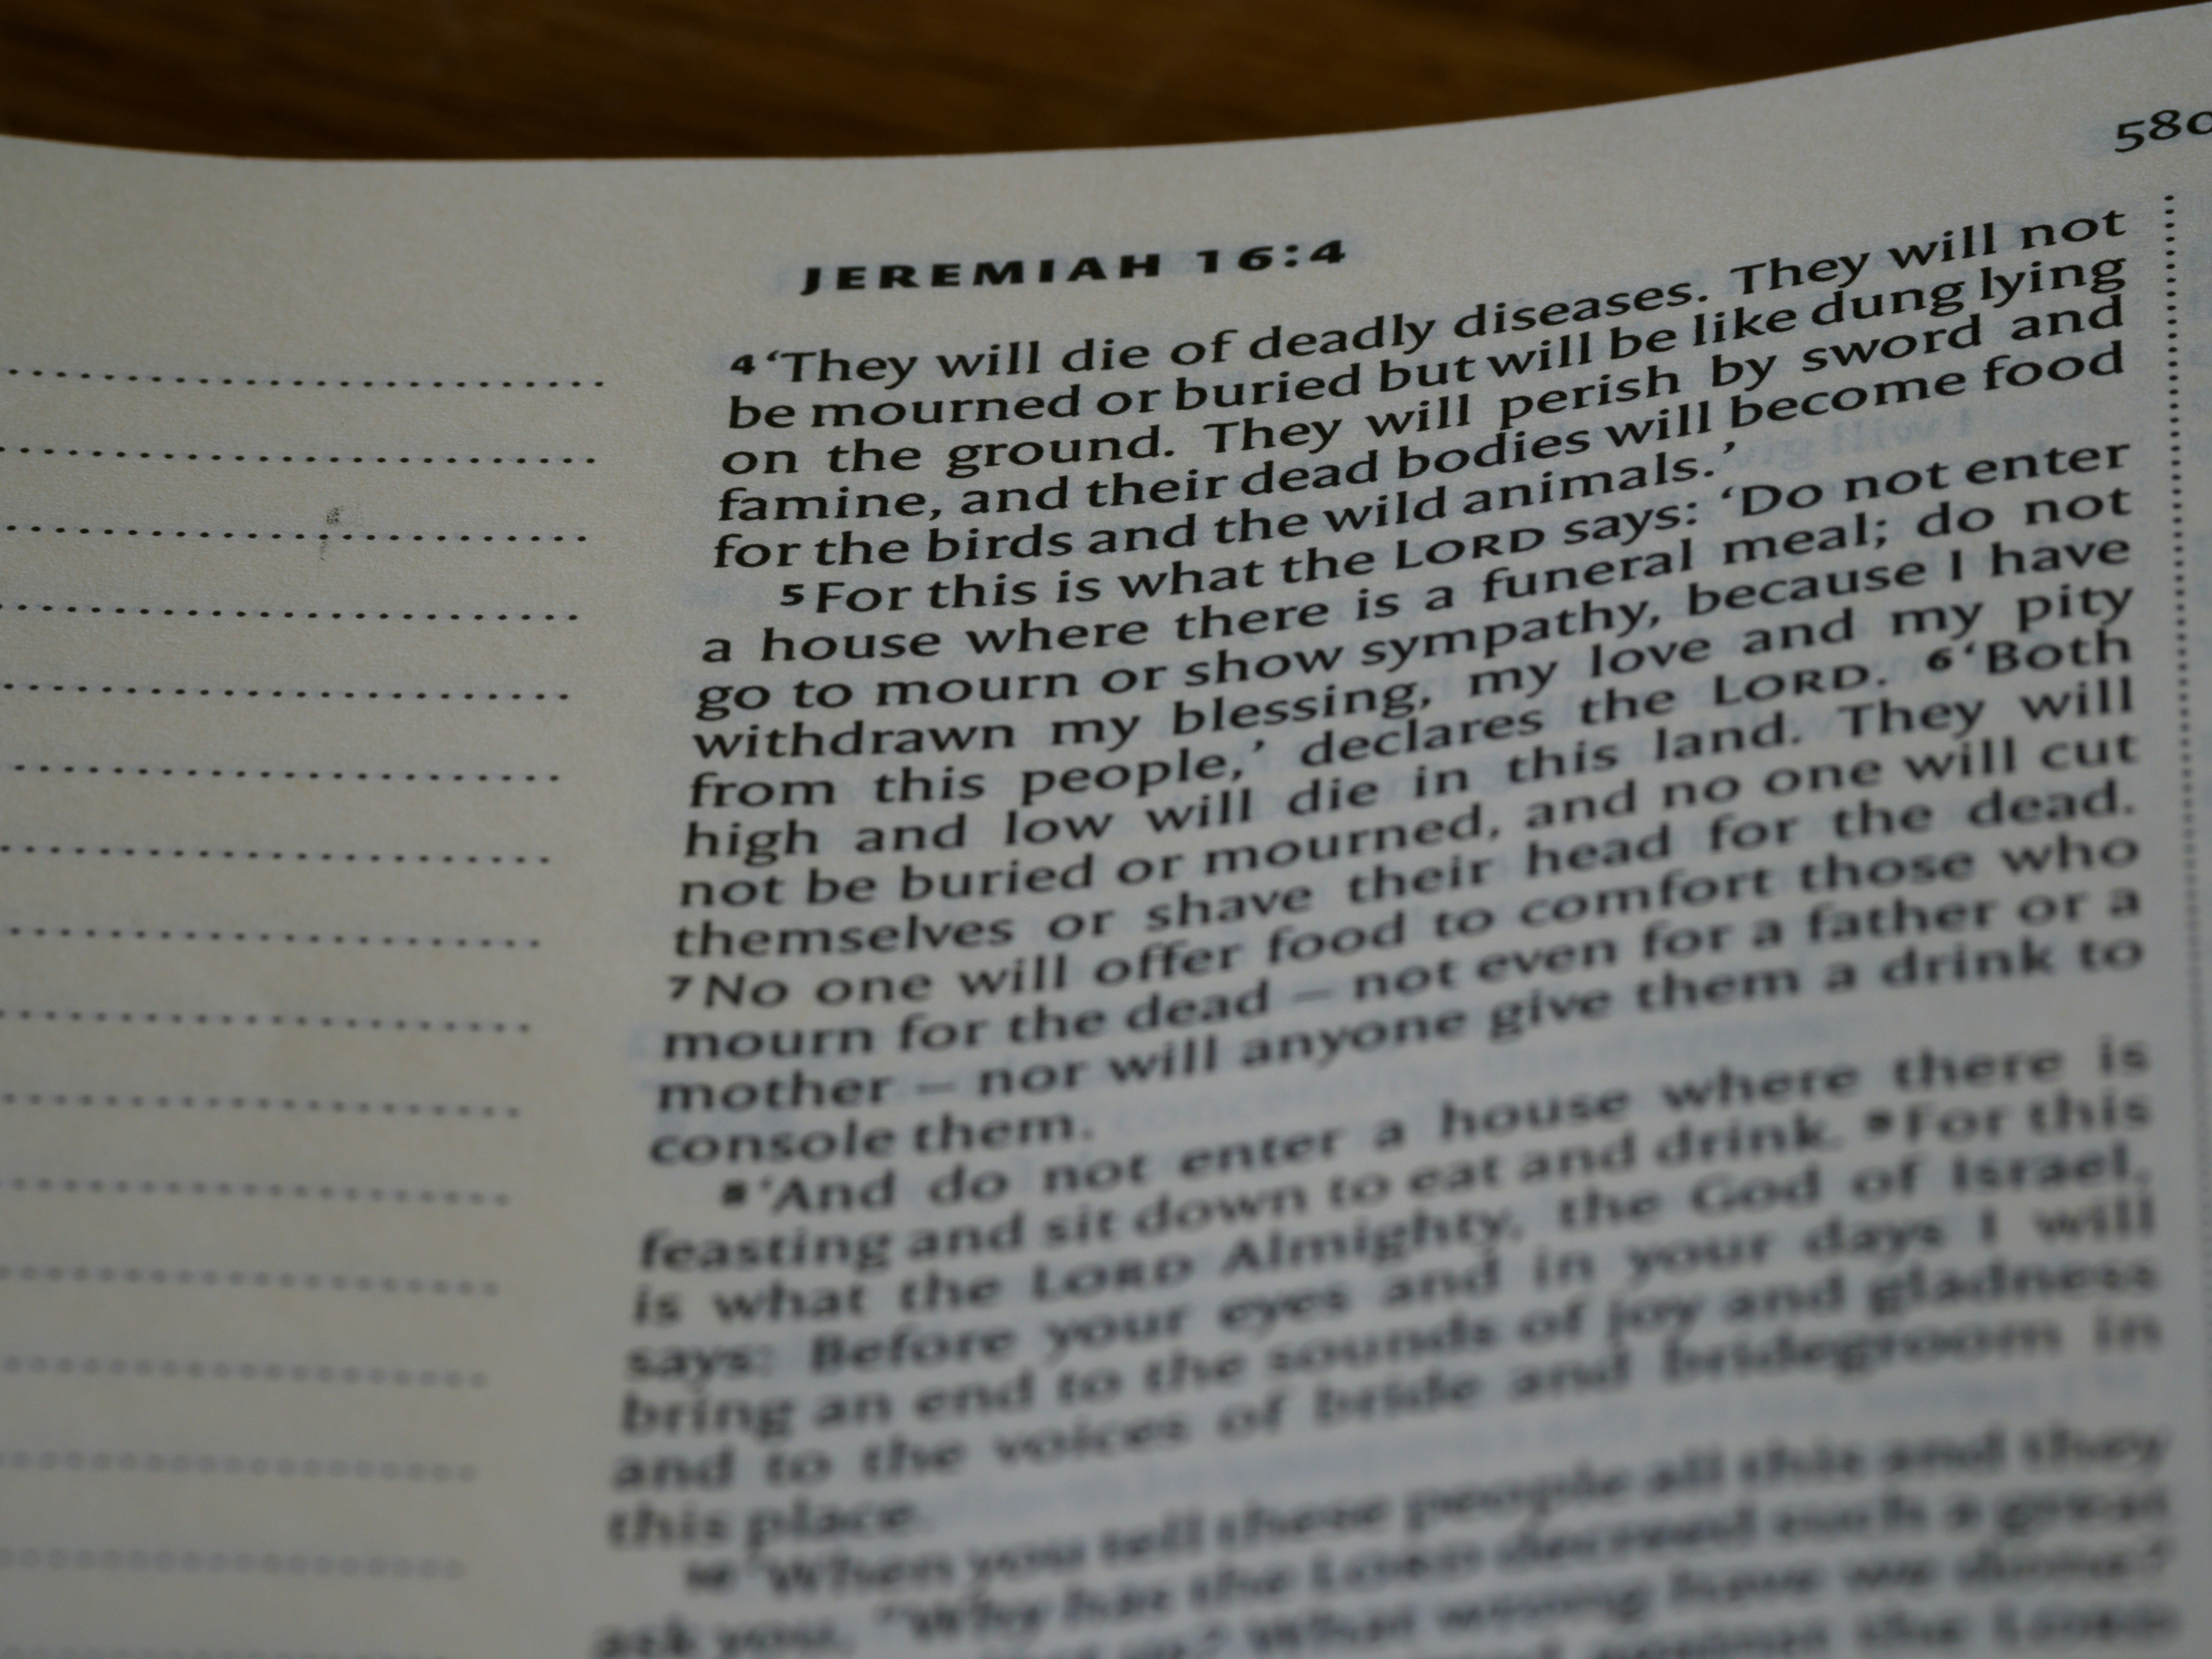 580
JEREMIAH 16:4
4 ‘They will die of deadly diseases. They will not
be mourned or buried but will be like dung lying
on the ground. They will perish by sword and
famine, and their dead bodies will become food
for the birds and the wild animals.’
5 For this is what the LORD says: ‘Do not enter
a house where there is a funeral meal; do not
go to mourn or show sympathy, because I have
withdrawn my blessing, my love and my pity
from this people,’ declares the LORD. 6 ‘Both
high and low will die in this land. They will
not be buried or mourned, and no one will cut
themselves or shave their head for the dead.
7 No one will offer food to comfort those who
mourn for the dead – not even for a father or a
mother – nor will anyone give them a drink to
console them.
8 ‘And do not enter a house where there is
feasting and sit down to eat and drink. 9 For this
is what the LORD Almighty, the God of Israel,
says: Before your eyes and in your days I will
bring an end to the sounds of joy and gladness
and to the voices of bride and bridegroom in
this place.
10 ‘When you tell these people all this and they
ask you, “Why has the LORD decreed such a great
What wrong have we done?
against the LORD